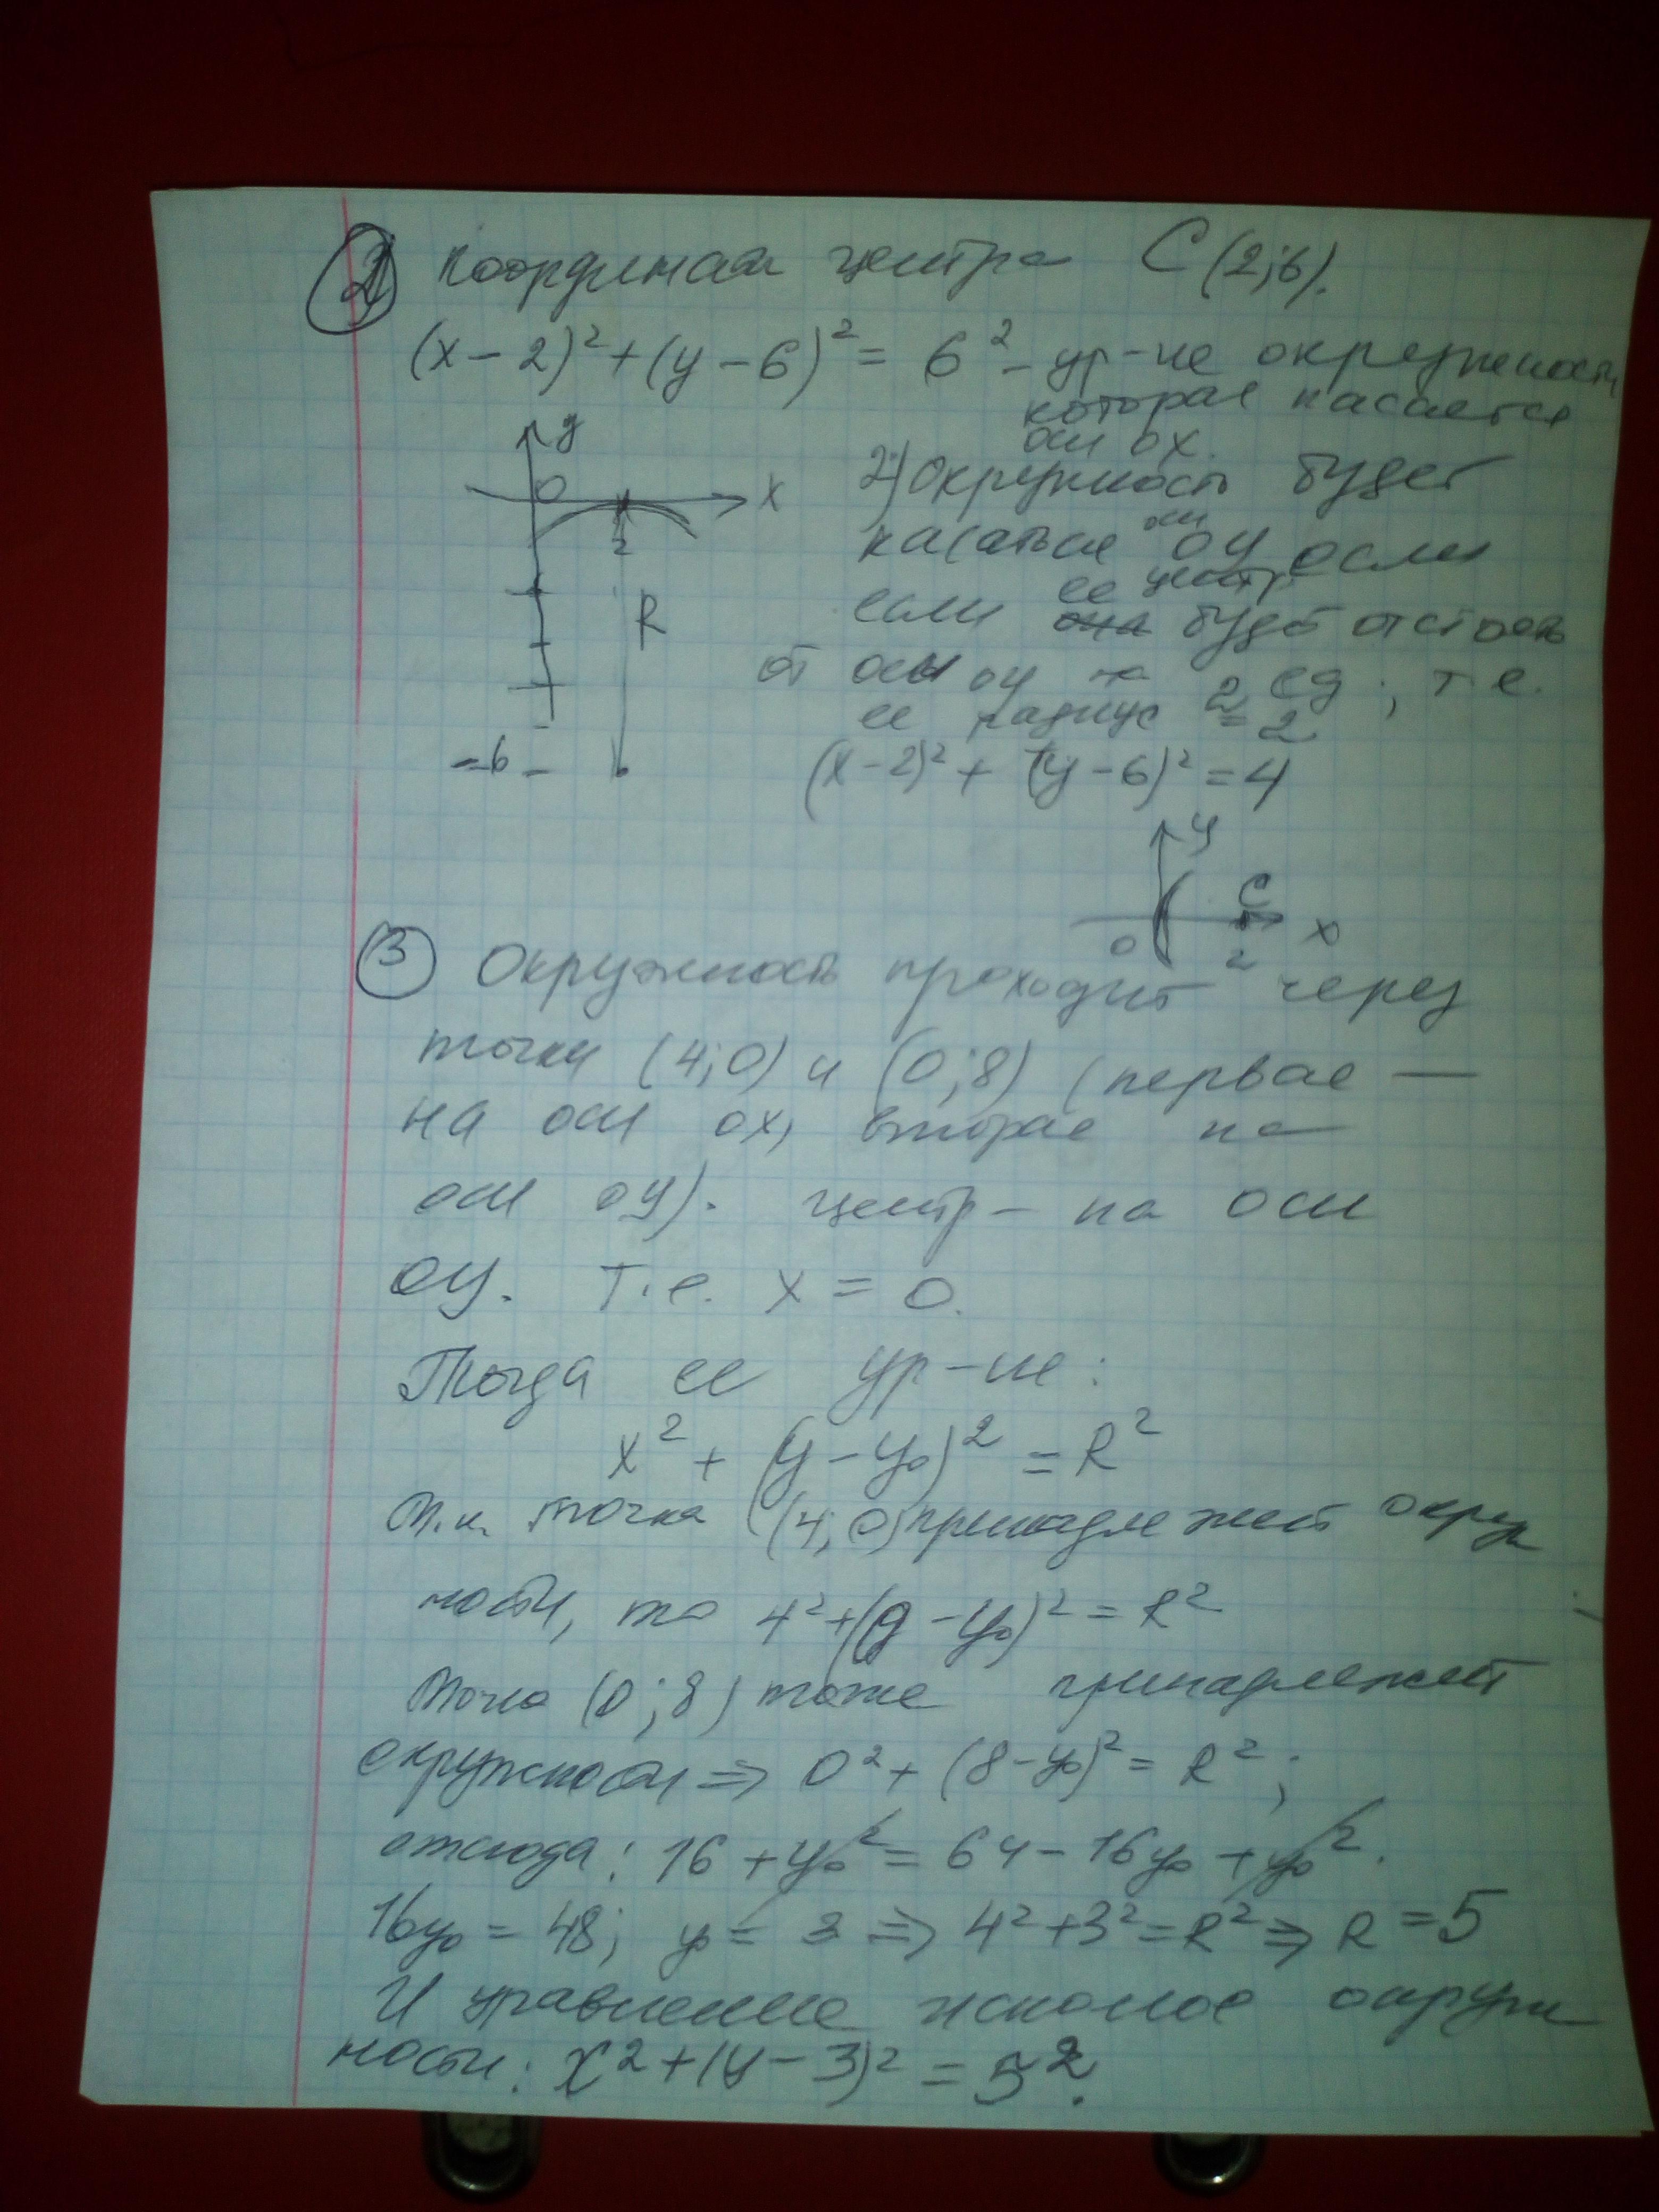 ② Координаты центра C(2;6).
(x-2)²+(y-6)²=6² - ур-ние окружности,
которая касается
оси ox.
y
0
x
2
R
-6
2) Окружность будет
касаться оси oy если
если ее центр будет отстоять
от оси oy на 2 ед., т.е.
ее радиус = 2
(x-2)² + (y-6)² = 4
y
C
0
2
x
③ Окружность проходит через
точки (4;0) и (0;8) (первая —
на оси ox, вторая на
оси oy). Центр - на оси
oy. Т.е. x = 0.
Тогда ее ур-ие:
x² + (y-y₀)² = R²
Т.к. точка (4;0) принадлежит окруж
ности, то 4²+(0-y₀)² = R²
Точка (0;8) тоже принадлежит
окружности ⇒ 0²+(8-y₀)² = R²;
отсюда: 16+y₀² = 64-16y₀+y₀².
16y₀ = 48; y₀ = 3 ⇒ 4²+3²=R² ⇒ R=5
И уравнение искомое окруж
ности: x²+(y-3)² = 5².